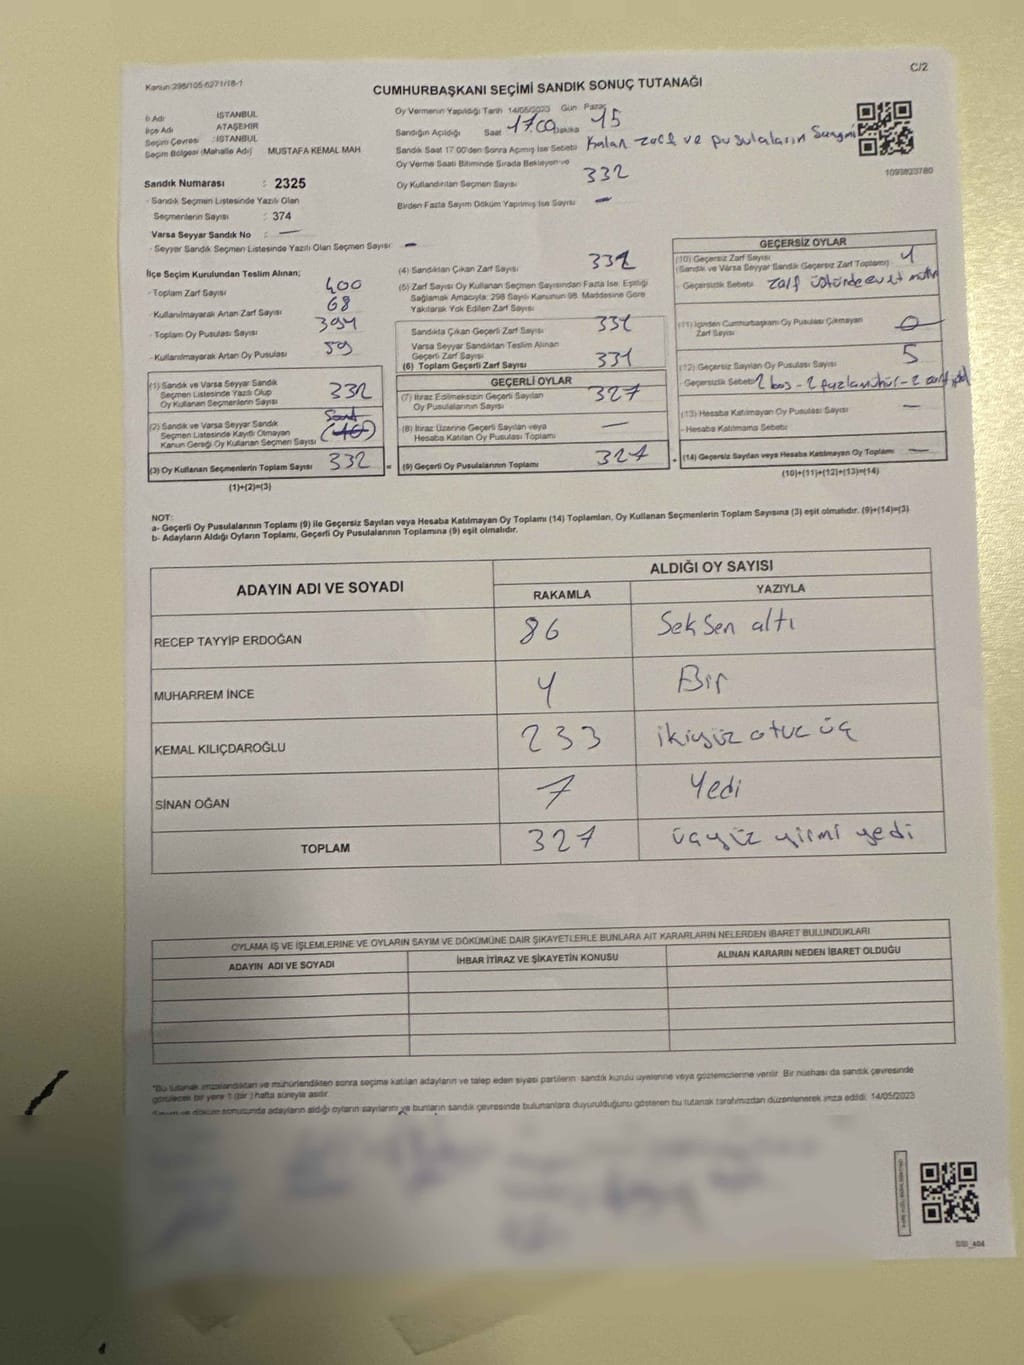 Kanun:298/105-6271/18-1
C/2
CUMHURBAŞKANI SEÇİMİ SANDIK SONUÇ TUTANAĞI
İl Adı : İSTANBUL
İlçe Adı : ATAŞEHİR
Seçim Çevresi : İSTANBUL
Seçim Bölgesi (Mahalle Adı) MUSTAFA KEMAL MAH
Sandık Numarası : 2325
- Sandık Seçmen Listesinde Yazılı Olan
Seçmenlerin Sayısı : 374
Varsa Seyyar Sandık No : —
- Seyyar Sandık Seçmen Listesinde Yazılı Olan Seçmen Sayısı : —
Oy Vermenin Yapıldığı Tarih 14/05/2023 Gün Pazar
Sandığın Açıldığı Saat 17.00 Dakika 45
Sandık Saat 17.00'den Sonra Açılmış İse Sebebi Kalan zarf ve pusulaların Sayımı
Oy Verme Saati Bitiminde Sırada Bekleyen ve
Oy Kullandırılan Seçmen Sayısı 332
Birden Fazla Sayım Döküm Yapılmış İse Sayısı —
1093823780
İlçe Seçim Kurulundan Teslim Alınan;
- Toplam Zarf Sayısı 400
- Kullanılmayarak Artan Zarf Sayısı 68
- Toplam Oy Pusulası Sayısı 394
- Kullanılmayarak Artan Oy Pusulası 59
(1) Sandık ve Varsa Seyyar Sandık
Seçmen Listesinde Yazılı Olup
Oy Kullanan Seçmenlerin Sayısı 332
(2) Sandık ve Varsa Seyyar Sandık
Seçmen Listesinde Kayıtlı Olmayan
Kanun Gereği Oy Kullanan Seçmen Sayısı
(3) Oy Kullanan Seçmenlerin Toplam Sayısı 332
(1)+(2)=(3)
(4) Sandıktan Çıkan Zarf Sayısı 332
(5) Zarf Sayısı Oy Kullanan Seçmen Sayısından Fazla İse, Eşitliği
Sağlamak Amacıyla; 298 Sayılı Kanunun 98. Maddesine Göre
Yakılarak Yok Edilen Zarf Sayısı
Sandıkta Çıkan Geçerli Zarf Sayısı 331
Varsa Seyyar Sandıktan Teslim Alınan
Geçerli Zarf Sayısı
(6) Toplam Geçerli Zarf Sayısı 331
GEÇERLİ OYLAR
(7) İtiraz Edilmeksizin Geçerli Sayılan
Oy Pusulalarının Sayısı 327
(8) İtiraz Üzerine Geçerli Sayılan veya
Hesaba Katılan Oy Pusulası Toplamı —
(9) Geçerli Oy Pusulalarının Toplamı 327
GEÇERSİZ OYLAR
(10) Geçersiz Zarf Sayısı 1
(Sandık ve Varsa Seyyar Sandık Geçersiz Zarf Toplamı)
- Geçersizlik Sebebi zarf üstünde evet mührü
(11) İçinden Cumhurbaşkanı Oy Pusulası Çıkmayan
Zarf Sayısı 0
(12) Geçersiz Sayılan Oy Pusulası Sayısı 5
- Geçersizlik Sebebi 1 boş - 2 fazla mühür - 2
(13) Hesaba Katılmayan Oy Pusulası Sayısı —
- Hesaba Katılmama Sebebi
(14) Geçersiz Sayılan veya Hesaba Katılmayan Oy Toplamı —
(10)+(11)+(12)+(13)=(14)
NOT:
a- Geçerli Oy Pusulalarının Toplamı (9) ile Geçersiz Sayılan veya Hesaba Katılmayan Oy Toplamı (14) Toplamları, Oy Kullanan Seçmenlerin Toplam Sayısına (3) eşit olmalıdır. (9)+(14)=(3)
b- Adayların Aldığı Oyların Toplamı, Geçerli Oy Pusulalarının Toplamına (9) eşit olmalıdır.
ADAYIN ADI VE SOYADI ALDIĞI OY SAYISI
RAKAMLA YAZIYLA
RECEP TAYYİP ERDOĞAN 86 Seksen altı
MUHARREM İNCE 1 Bir
KEMAL KILIÇDAROĞLU 233 ikiyüz otuz üç
SİNAN OĞAN 7 Yedi
TOPLAM 327 üçyüz yirmi yedi
OYLAMA İŞ VE İŞLEMLERİNE VE OYLARIN SAYIM VE DÖKÜMÜNE DAİR ŞİKAYETLERLE BUNLARA AİT KARARLARIN NELERDEN İBARET BULUNDUKLARI
ADAYIN ADI VE SOYADI İHBAR İTİRAZ VE ŞİKAYETİN KONUSU ALINAN KARARIN NEDEN İBARET OLDUĞU
*Bu tutanak imzalandıktan ve mühürlendikten sonra seçime katılan adayların ve talep eden siyasi partilerin sandık kurulu üyelerine veya gözlemcilerine verilir. Bir nüshası da sandık çevresinde
görülecek bir yere 1 (bir) hafta süreyle asılır.
Sayım ve döküm sonucunda adayların aldığı oyların sayılarını ve bunların sandık çevresinde bulunanlara duyurulduğunu gösteren bu tutanak tarafımızdan düzenlenerek imza edildi. 14/05/2023